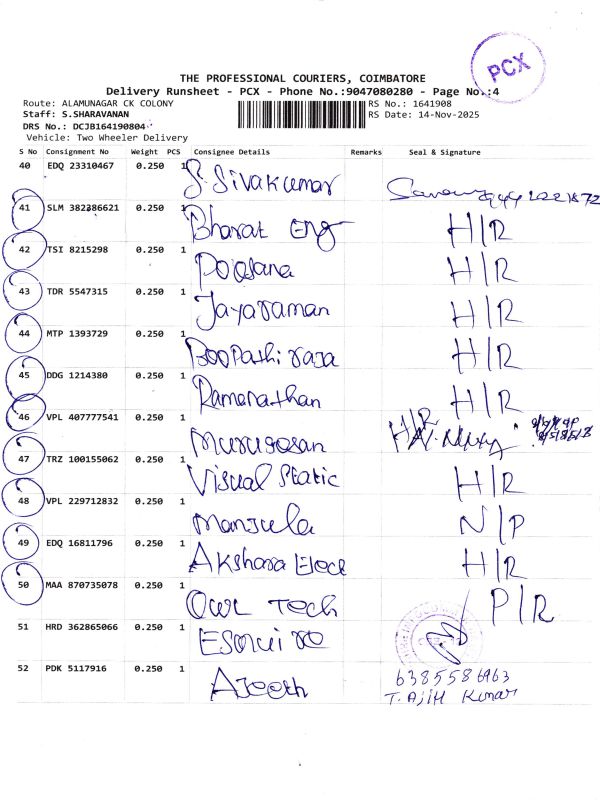 PCX
THE PROFESSIONAL COURIERS, COIMBATORE
Delivery Runsheet - PCX - Phone No.:9047080280 - Page No.:4
Route: ALAMUNAGAR CK COLONY RS No.: 1641908
Staff: S.SHARAVANAN RS Date: 14-Nov-2025
DRS No.: DCJB164190804
Vehicle: Two Wheeler Delivery
S No Consignment No Weight PCS Consignee Details Remarks Seal & Signature
40 EDQ 23310467 0.250 1 S. Sivakumar
41 SLM 382386621 0.250 1 Bharat Eng H/R
42 TSI 8215298 0.250 1 H/R
43 TDR 5547315 0.250 1 Jayaraman H/R
44 MTP 1393729 0.250 1 Boopathi raja H/R
45 DDG 1214380 0.250 1 Ramanathan H/R
46 VPL 407777541 0.250 1 Murugesan H/R
47 TRZ 100155062 0.250 1 Visual Static H/R
48 VPL 229712832 0.250 1 Manjula N/P
49 EDQ 16811796 0.250 1 Akshara Elect H/R
50 MAA 870735078 0.250 1 Owr Tech P/R
51 HRD 362865066 0.250 1
52 PDK 5117916 0.250 1 Ajeeth 6385586963
T. Ajith Kumar